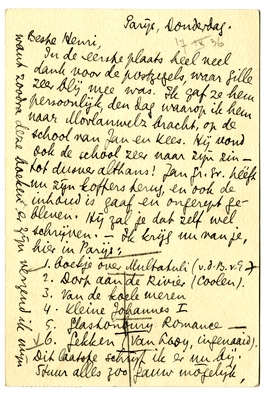 Parijs, Donderdag.
17 IX 36
Beste Henri,
In de eerste plaats heel veel
dank voor de postzegels, waar Gille
zeer blij mee was. Ik gaf ze hem
persoonlijk, den dag waarop ik hem
naar Morlanwelz bracht, op de
school van Jan en Kees. Hij vond
ook de school zeer naar zijn zin –
tot dusver althans! Jan Gr. Gr. heeft
nu zijn koffers terug, en ook de
inhoud is gaaf en ongerept ge-
bleven. Hij zal je dat zelf wel
schrijven. – Ik krijg nu van je,
hier in Parijs:
1. boekje over Multatuli (v.d.B.v.E.)
2. Dorp aan de Rivier (Coolen).
3. Van de koele meren
4. Kleine Johannes I
5. Glastonbury Romance –
6. Gekken (Van Looy, ingenaaid).
Dit laatste schrijf ik er nu bij.
Stuur alles zoo gauw mogelijk,
want zoodra deze boeken er zijn verzend ik mijn